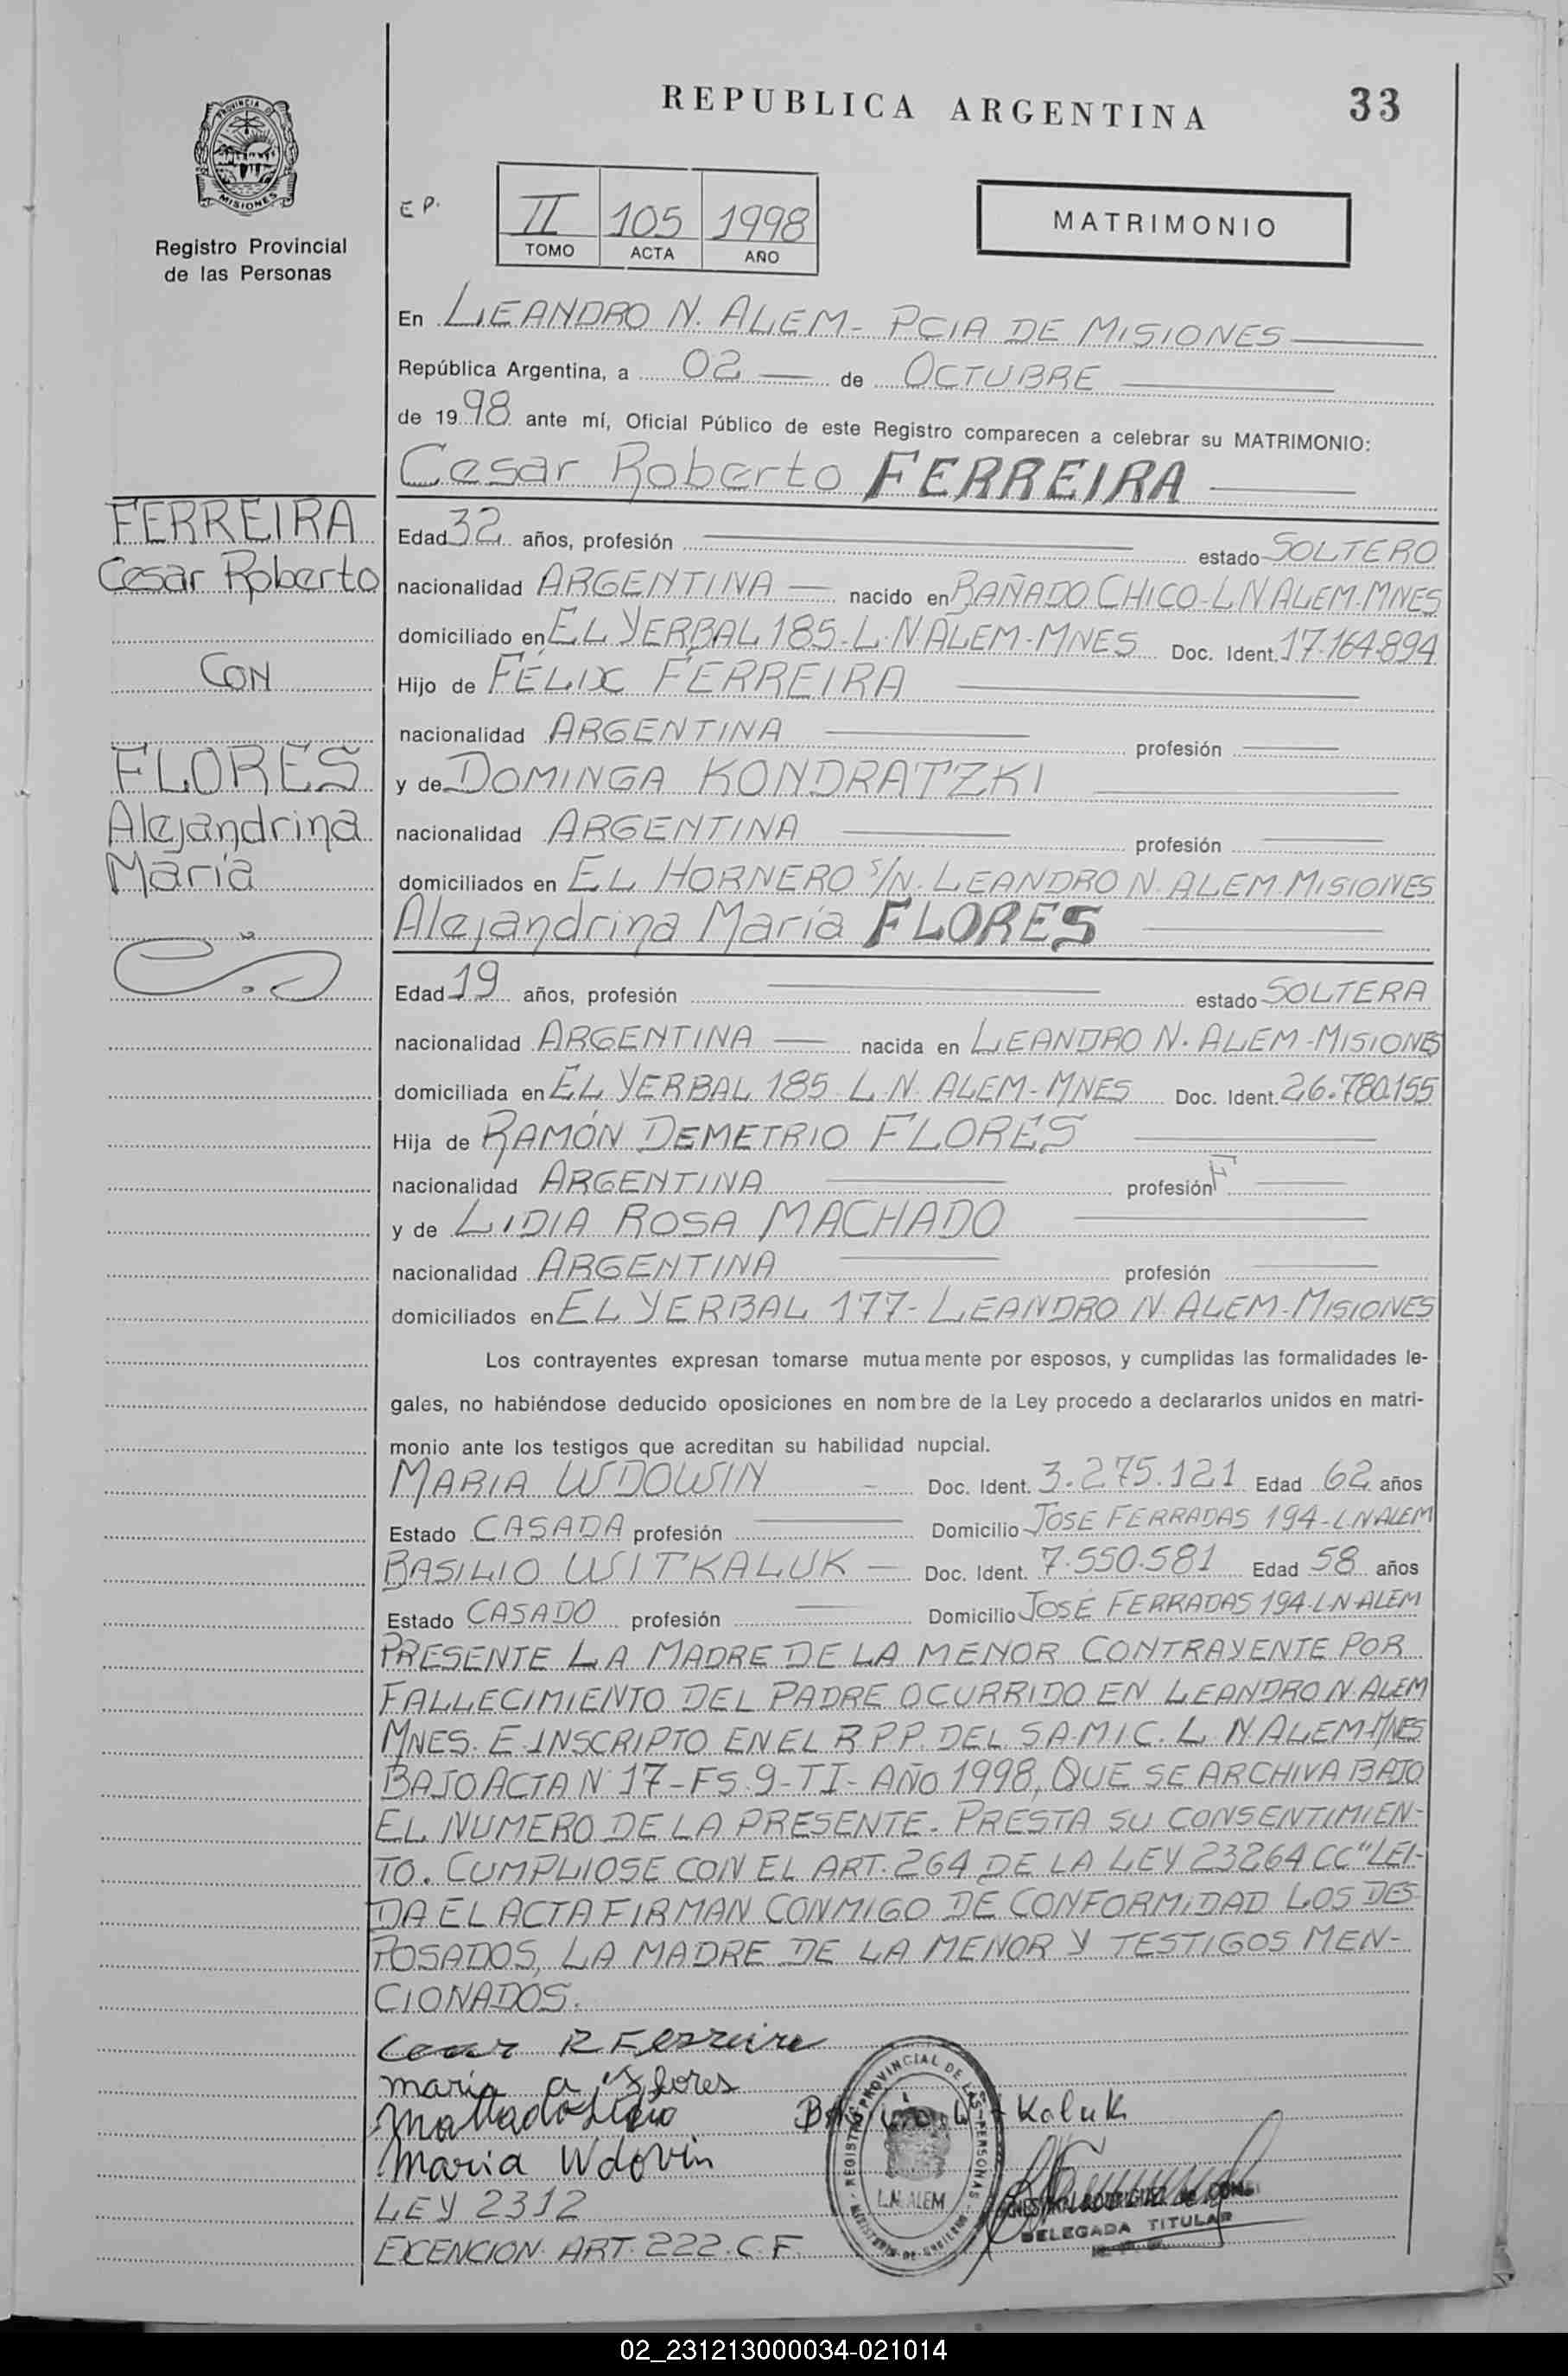 REPUBLICA ARGENTINA
33
PROVINCIA DE
MISIONES
Registro Provincial
de las Personas
E P.
II 105 1998
TOMO ACTA AÑO
MATRIMONIO
En LEANDRO N. ALEM - PCIA DE MISIONES
República Argentina, a 02 de OCTUBRE
de 1998 ante mí, Oficial Público de este Registro comparecen a celebrar su MATRIMONIO:
Cesar Roberto FERREIRA
FERREIRA
Cesar Roberto
CON
FLORES
Alejandrina
María
Edad 32 años, profesión estado SOLTERO
nacionalidad ARGENTINA nacido en BAÑADO CHICO-L N ALEM-MNES
domiciliado en EL YERBAL 185-L.N.ALEM-MNES Doc. Ident. 17.164.894
Hijo de FÉLIX FERREIRA
nacionalidad ARGENTINA profesión
y de DOMINGA KONDRATZKI
nacionalidad ARGENTINA profesión
domiciliados en EL HORNERO S/N. LEANDRO N. ALEM MISIONES
Alejandrina María FLORES
Edad 19 años, profesión estado SOLTERA
nacionalidad ARGENTINA nacida en LEANDRO N. ALEM-MISIONES
domiciliada en EL YERBAL 185 L.N. ALEM-MNES Doc. Ident. 26.780.155
Hija de RAMÓN DEMETRIO FLORES
nacionalidad ARGENTINA profesión F
y de LIDIA ROSA MACHADO
nacionalidad ARGENTINA profesión
domiciliados en EL YERBAL 177- LEANDRO N. ALEM-MISIONES
Los contrayentes expresan tomarse mutuamente por esposos, y cumplidas las formalidades le-
gales, no habiéndose deducido oposiciones en nombre de la Ley procedo a declararlos unidos en matri-
monio ante los testigos que acreditan su habilidad nupcial.
MARIA WDOWIN - Doc. Ident. 3.275.121 Edad 62 años
Estado CASADA profesión Domicilio JOSE FERRADAS 194-L N ALEM
BASILIO WITKALUK - Doc. Ident. 7.550.581 Edad 58 años
Estado CASADO profesión Domicilio JOSÉ FERRADAS 194-L.N-ALEM
PRESENTE LA MADRE DE LA MENOR CONTRAYENTE POR
FALLECIMIENTO DEL PADRE OCURRIDO EN LEANDRO N. ALEM
MNES. E INSCRIPTO EN EL R P P. DEL S.A.M.I.C. L. N ALEM-MNES
BAJO ACTA Nº 17-FS.9-TI-AÑO 1998, QUE SE ARCHIVA BAJO
EL NUMERO DE LA PRESENTE. PRESTA SU CONSENTIMIEN-
TO. CUMPLIOSE CON EL ART. 264 DE LA LEY 23264 CC" LEI-
DA EL ACTA FIRMAN CONMIGO DE CONFORMIDAD LOS DES
POSADOS, LA MADRE DE LA MENOR Y TESTIGOS MEN-
CIONADOS.
Cesar R Ferreira
maria a flores
Machado Lidia
Basilio Witkaluk
Maria Wdovin
LEY 2312
EXCENCION ART. 222. C.F.
REGISTRO PROVINCIAL DE LAS PERSONAS
MINISTERIO DE GOBIERNO
L.N. ALEM
RODRIGUEZ de
DELEGADA TITULAR
02_231213000034-021014